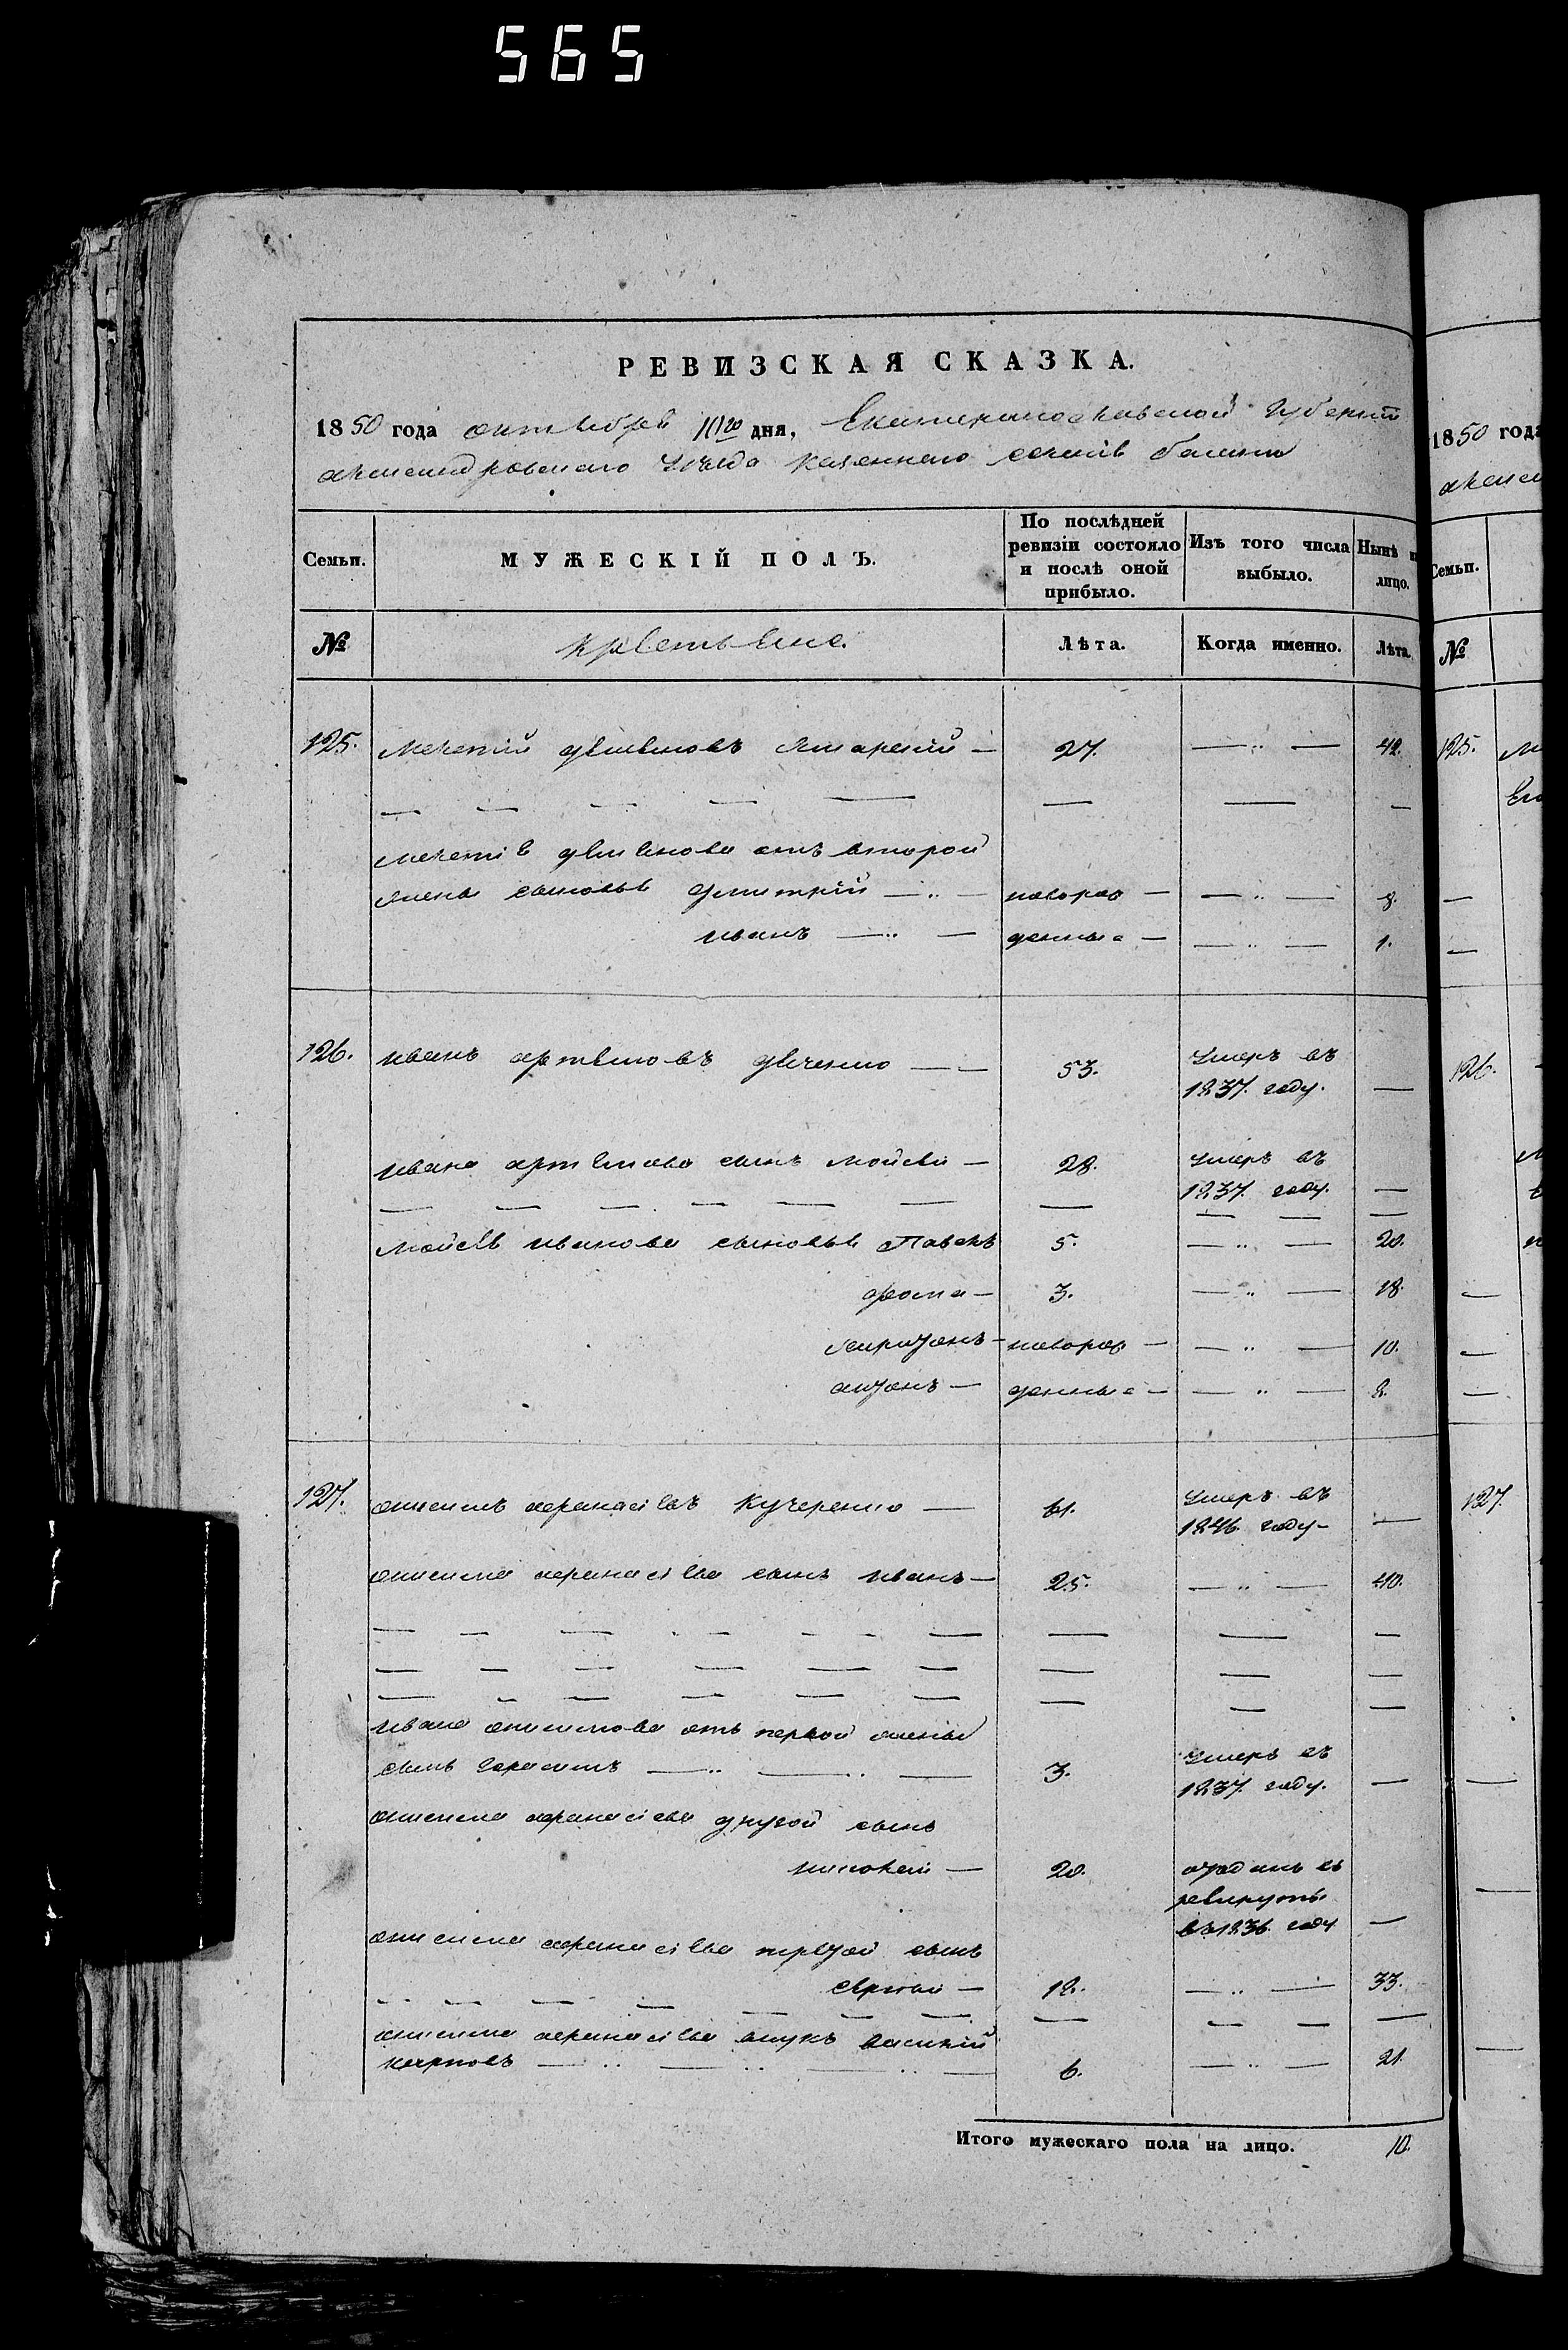 565
РЕВИЗСКАЯ СКАЗКА.
1850 года октября 10го дня, Екатеринославской Губернии
александровского уезда казенного селения
Семьи.
МУЖЕСКІЙ ПОЛЪ.
По послѣдней ревизіи состояло и послѣ оной прибыло.
Изъ того числа выбыло.
Нынѣ н лицо.
№
крестьяне.
Лѣта.
Когда именно.
Лѣта.
125. 27. — 42.
от второй
жены сыновья Дмитрій — новорож — 8.
иванъ — денные — 1.
126. иванъ артемовъ — 53. умеръ въ
1837. году. —
ивана артемова сынъ мойсей — 28. умеръ въ
1837. году. —
мойсея иванова сыновья Павелъ 5. — 20.
фома — 3. — 18.
новорож — 10.
антонъ — денные — 8.
127. анисимъ афанасіевъ Кучеренко — 61. умеръ въ
1846. году —
анисима афанасіева сынъ иванъ — 25. — 40.
ивана анисимова отъ первой жены
сынъ герасимъ — 3. умеръ въ
1837. году. —
анисима афанасіева другой сынъ
николай — 20. отданъ въ
рекруты
въ 1836. году —
анисима афанасіева третій сынъ
сергей — 18. — 33.
анисима афанасіева внукъ василий
карповъ — 6. — 21.
Итого мужескаго пола на лицо. 10.
1850 года
Семьи.
№
125.
126.
127.